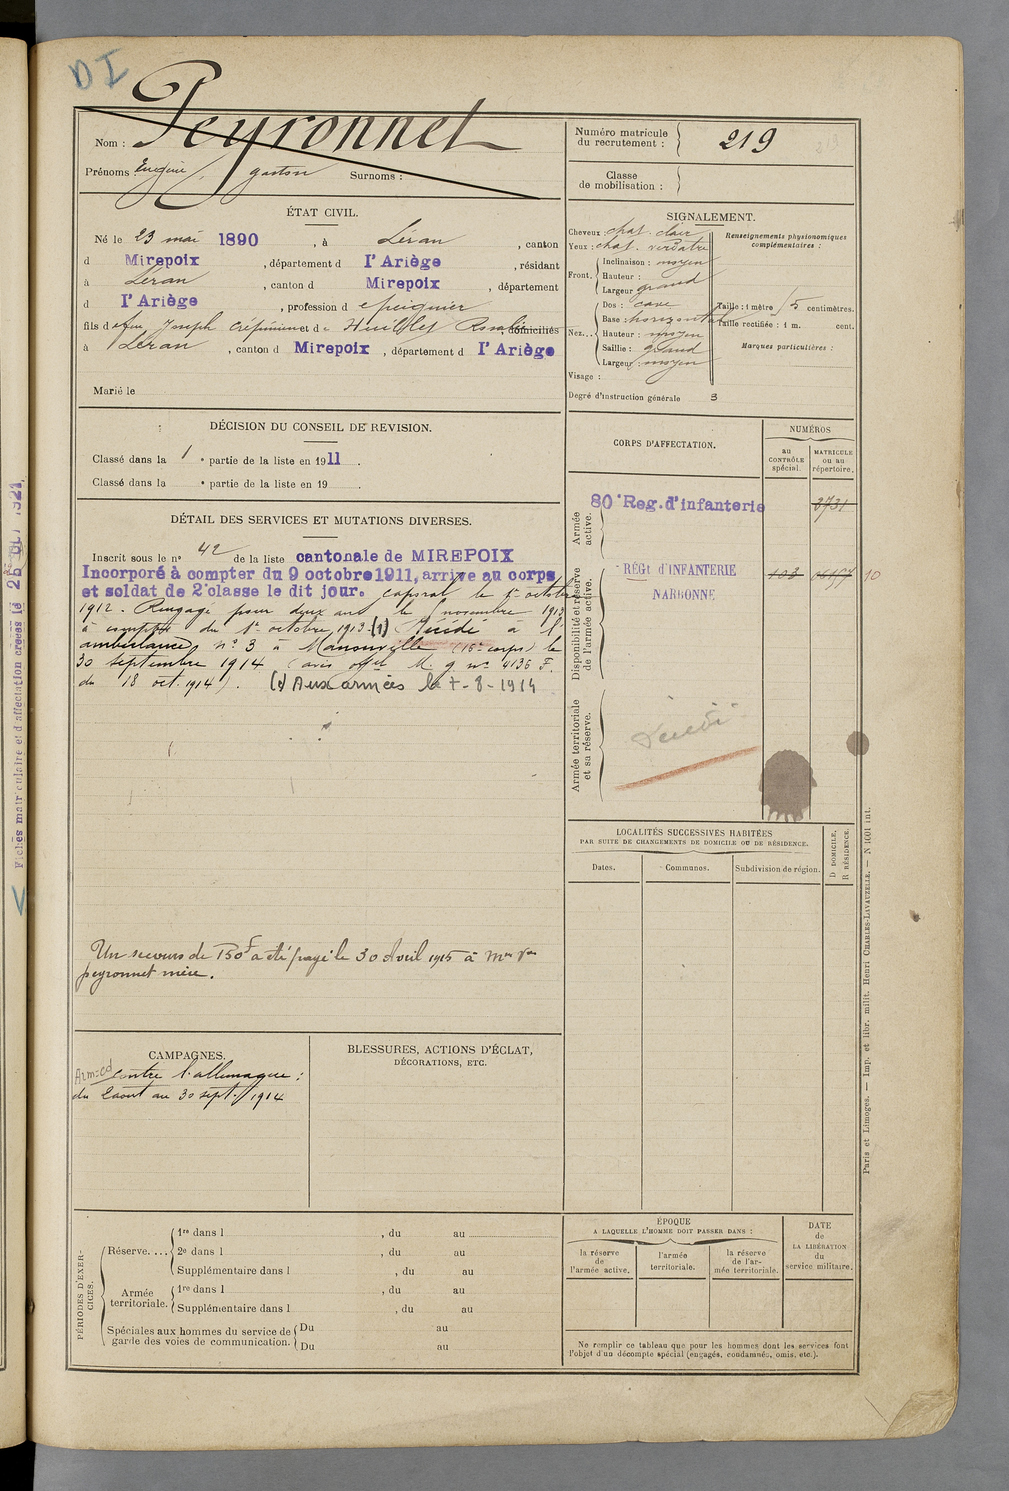 DI
Nom : Peyronnet
Prénoms Eugène gaston Surnoms :
Numéro matricule du recrutement : 219
Classe de mobilisation :
ÉTAT CIVIL.
Né le 23 mai 1890, à Léran, canton
d Mirepoix, département d l'Ariège, résidant
à Léran, canton d Mirepoix, département
d l'Ariège, profession d
fils d feu Joseph Crépin et d Rosalie, domiciliés
à Léran, canton d Mirepoix, département d l'Ariège
Marié le
SIGNALEMENT.
Cheveux : chat. clair
Yeux : chat. verdâtre
Front. Inclinaison : moyen
Hauteur :
Largeur grand
Nez... Dos : cave
Base : horizontal
Hauteur : moyen
Saillie : grand
Largeur : moyen
Visage :
Degré d'instruction générale 3
Renseignements physionomiques complémentaires :
Taille : 1 mètre 5 centimètres.
Taille rectifiée : 1 m. cent.
Marques particulières :
DÉCISION DU CONSEIL DE REVISION.
Classé dans la 1 e partie de la liste en 1911.
Classé dans la e partie de la liste en 19 .
CORPS D'AFFECTATION.
NUMÉROS
au CONTRÔLE spécial.
MATRICULE ou au répertoire.
Armée active.
80e Reg. d'infanterie
3731
Disponibilité et réserve de l'armée active.
RÉGt d'INFANTERIE
NARBONNE
103
10
Armée territoriale et sa réserve.
Décédé
DÉTAIL DES SERVICES ET MUTATIONS DIVERSES.
Inscrit sous le n° 42 de la liste cantonale de MIREPOIX
Incorporé à compter du 9 octobre 1911, arrive au corps
et soldat de 2e classe le dit jour. Caporal le 1er octobre
1912. Rengagé pour deux ans le novembre 1913
à compter du 1er octobre 1913. (1) Décédé à l'
ambulance n° 3 à Manonville (16e corps) le
30 septembre 1914 (avis offel M. g n° 4136 F.
du 18 oct. 1914). (1) Aux armées le 7-8-1914
Un secours de 150f a été payé le 30 Avril 1915 à Mme Vve
Peyronnet mère.
LOCALITÉS SUCCESSIVES HABITÉES
PAR SUITE DE CHANGEMENTS DE DOMICILE OU DE RÉSIDENCE.
Dates. Communes. Subdivision de région. D DOMICILE, R RÉSIDENCE.
CAMPAGNES.
contre l'allemagne :
du 2 aout au 30 sept. 1914
BLESSURES, ACTIONS D'ÉCLAT,
DÉCORATIONS, ETC.
PÉRIODES D'EXERCICES.
Réserve.... 1re dans l , du au
2e dans l , du au
Supplémentaire dans l , du au
Armée territoriale. 1re dans l , du au
Supplémentaire dans l , du au
Spéciales aux hommes du service de garde des voies de communication. Du au
Du au
ÉPOQUE
A LAQUELLE L'HOMME DOIT PASSER DANS :
la réserve de l'armée active.
l'armée territoriale.
la réserve de l'armée territoriale.
DATE de LA LIBÉRATION du service militaire.
Ne remplir ce tableau que pour les hommes dont les services font
l'objet d'un décompte spécial (engagés, condamnés, omis, etc.).
Paris et Limoges. — Imp. et libr. milit. Henri CHARLES-LAVAUZELLE. — N 1601 int.